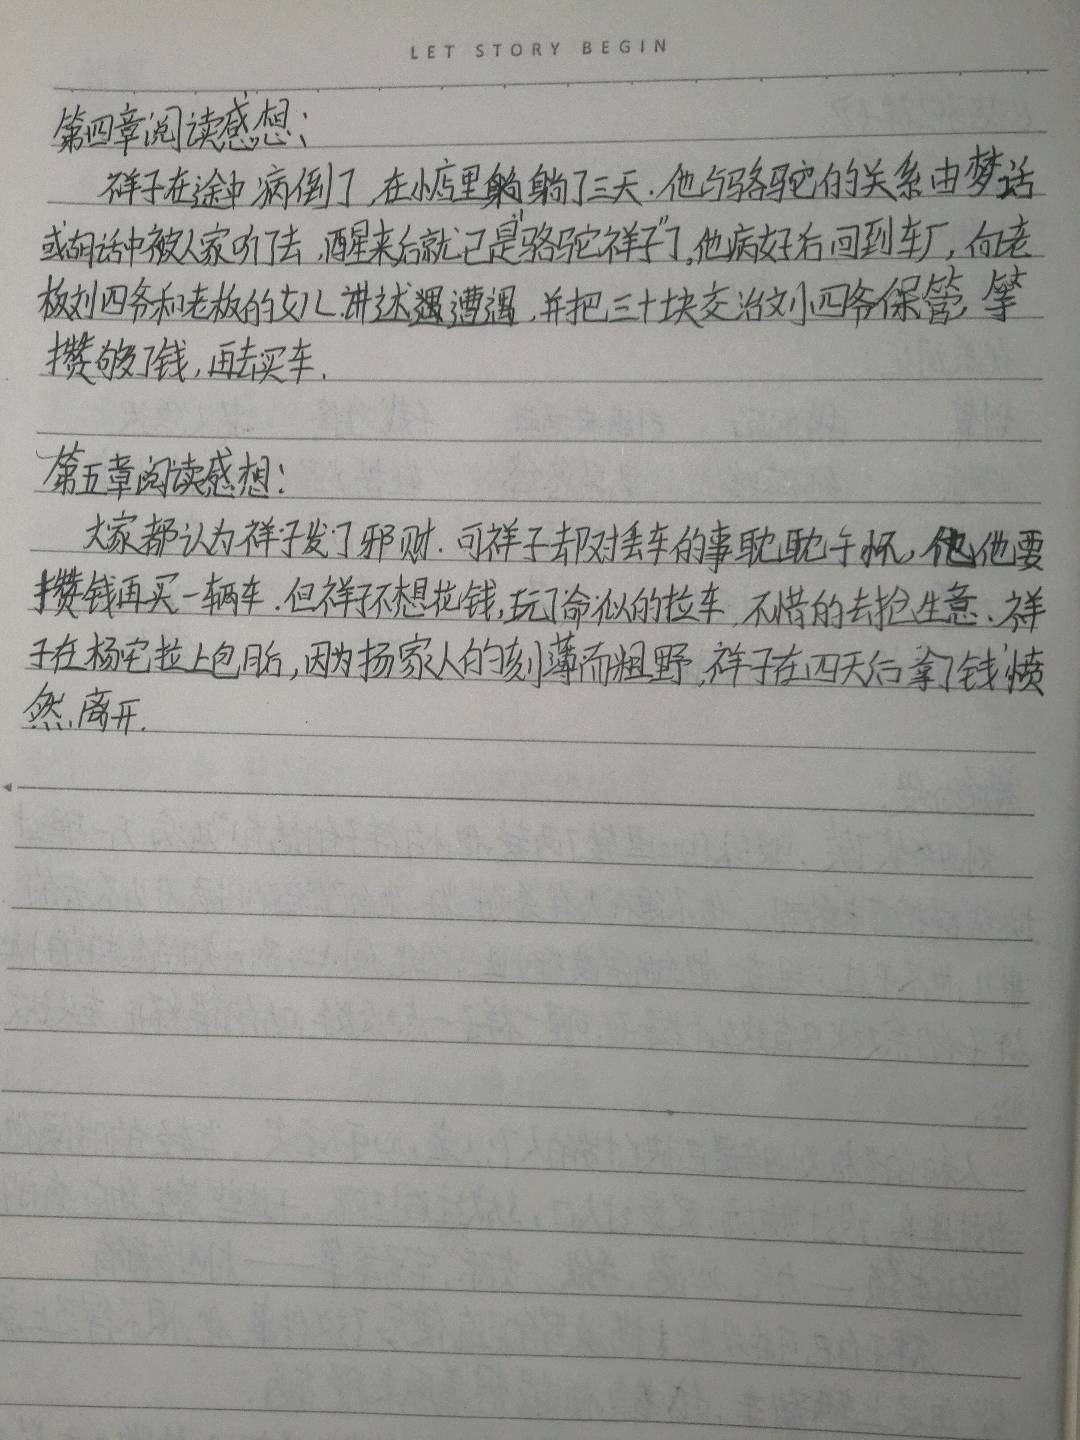 LET STORY BEGIN
第四章阅读感想：
祥子在途中病倒了,在小店里躺躺了三天.他与骆驼的关系由梦话
或胡话中被人家听了去,醒来后就已是"骆驼祥子"了,他病好后回到车厂,向老
板刘四爷和老板的女儿讲述遇遭遇,并把三十块交给刘小四爷保管,等
攒够了钱,再去买车.
第五章阅读感想：
大家都认为祥子发了邪财.可祥子却对丢车的事耽耽于怀,他他要
攒钱再买一辆车.但祥子不想拉钱,玩了命似的拉车,不惜的去抢生意.祥
子在杨宅拉上包月后,因为杨家人的刻薄而粗野,祥子在四天后拿了钱愤
然离开.